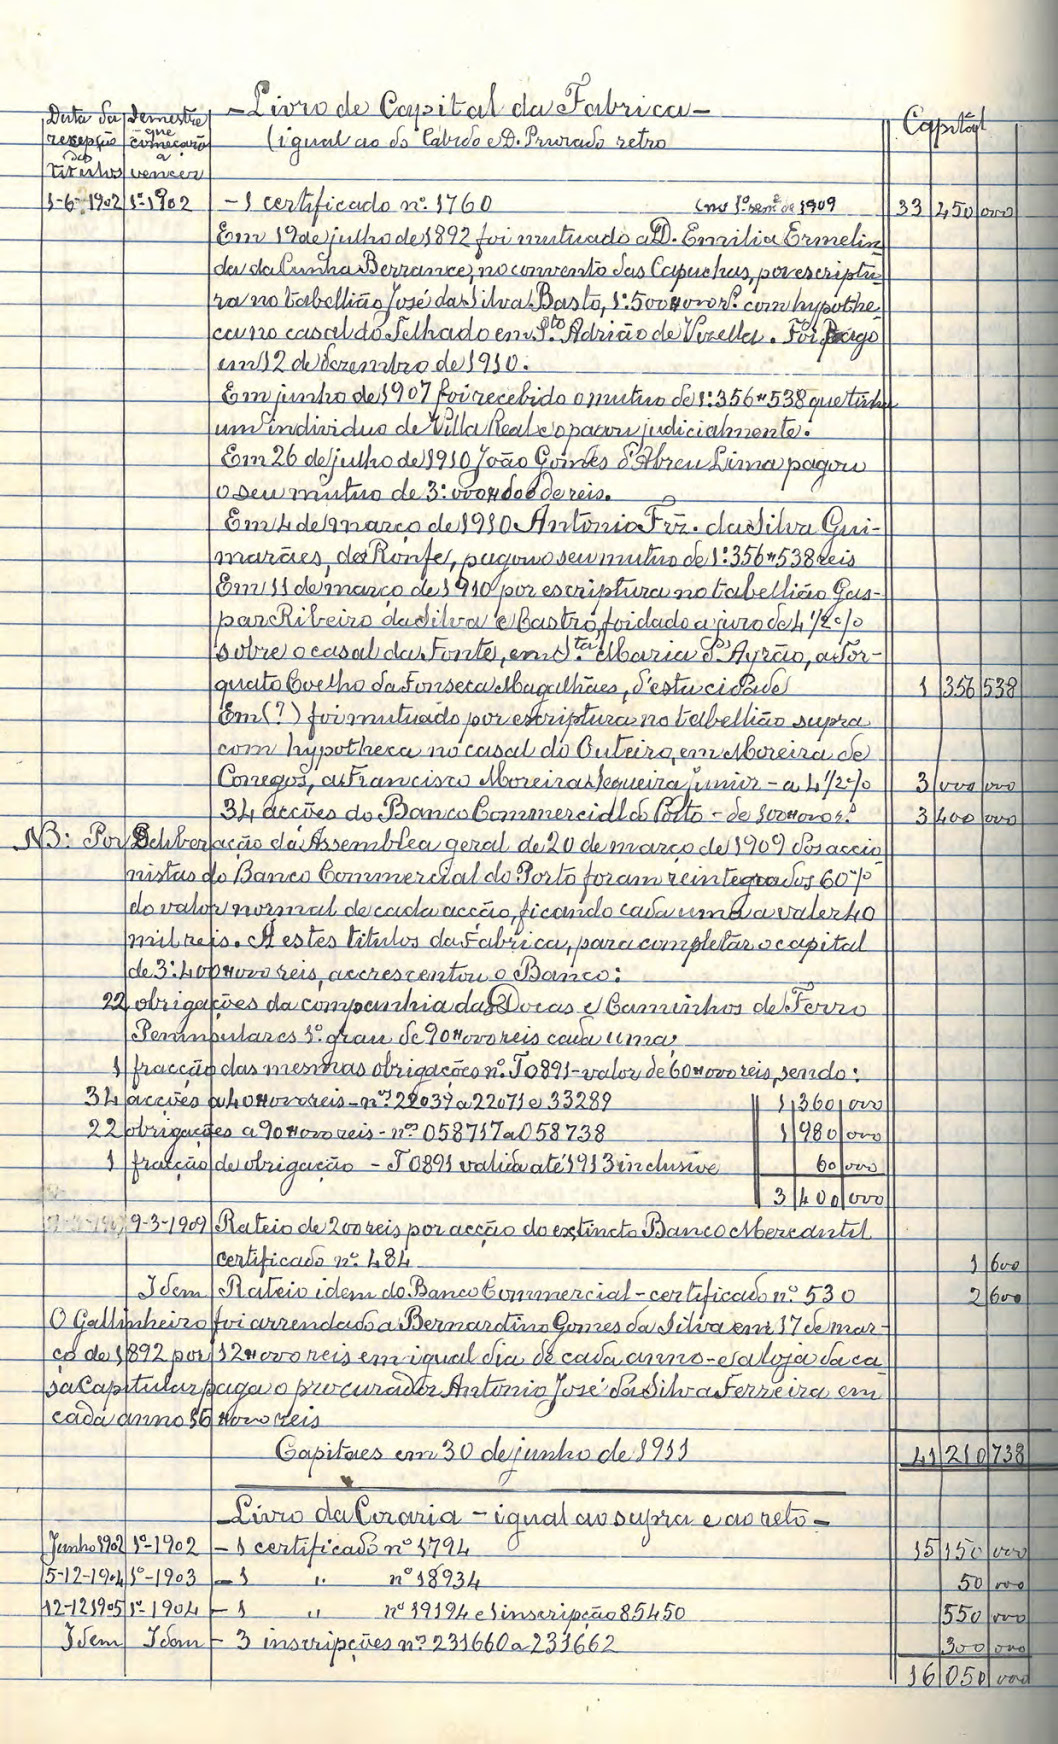 - Livro de Capital da Fabrica -
Data da Semestre Capital
recepção que começarão (igual ao do Cabido e D. Priorado retro
dos a
titulos vencer
1-6-1902 1º-1902 - 1 certificado nº 1760 (no 1º sem.e de 1909 33 450 000
Em 19 de julho de 1892 foi mutuado a D. Emilia Ermelin
da da Cunha Berrance, no convento das Capuchas, por escriptu-
ra no tabellião José da Silva Basto, 1:500#000 rs. com hypothe-
ca no casal do Telhado em Sto Adrião de Vizella. Foi pago
em 12 de dezembro de 1910.
Em junho de 1907 foi recebido o mutuo de 1:356#538 que tinha
um individuo de Villa Real e o pagou judicialmente.
Em 26 de julho de 1910 João Gomes d'Abreu Lima pagou
o seu mutuo de 3:000#000 de reis.
Em 4 de março de 1910 Antonio Frz. da Silva Gui-
marães, de Ronfe, pagou o seu mutuo de 1:356#538 reis
Em 11 de março de 1910 por escriptura no tabellião Gas-
par Ribeiro da Silva e Castro, foi dado a juro de 4 1/2 %
sobre o casal da Fonte, em Sta Maria d'Ayrão, a Tor-
quato Coelho da Fonseca Magalhães, d'esta cidade 1 356 538
Em (?) foi mutuado por escriptura no tabellião supra
com hypotheca no casal do Outeiro, em Moreira de
Conegos, a Francisco Moreira Sequeira Junior - a 4 1/2 % 3 000 000
34 acções do Banco Commercial do Porto - de 100#000 rs. 3 400 000
NB: Por deliberação da Assemblea geral de 20 de março de 1909 dos accio
nistas do Banco Commercial do Porto foram reintegrados 60 %
do valor normal de cada acção, ficando cada uma a valer 40
mil reis. A estes titulos da Fabrica, para completar o capital
de 3:400#000 reis, accrescentou o Banco:
22 obrigações da companhia das Docas e Caminhos de Ferro
Peninsulares 1º grau de 90#000 reis cada uma
1 fracção das mesmas obrigações nº T0891 - valor de 60#000 reis, sendo:
34 acções a 40#000 reis - nos 22039 a 22071 e 33289 1 360 000
22 obrigações a 90#000 reis - nos 058717 a 058738 1 980 000
1 fracção de obrigação - T0891 valida até 1913 inclusive 60 000
3 400 000
9-3-1909 Rateio de 200 reis por acção do extincto Banco Mercantil
certificado nº 484 1 600
Idem Rateio idem do Banco Commercial - certificado nº 530 2 600
O Gallinheiro foi arrendado a Bernardino Gomes da Silva em 17 de mar-
ço de 1892 por 12#000 reis em igual dia de cada anno - e a loja da ca
sa Capitular paga o procurador Antonio José da Silva Ferreira em
cada anno 16#000 reis
Capitaes em 30 de junho de 1911 41 210 738
- Livro da Coraria - igual ao supra e ao reto -
Junho 1902 1º-1902 - 1 certificado nº 1794 15 150 000
5-12-1904 1º-1903 - 1 " nº 18934 50 000
12-12 1905 1º-1904 - 1 " nº 19194 e 1 inscripção 85450 550 000
Idem Idem - 3 inscripções nos 231660 a 231662 300 000
16 050 000